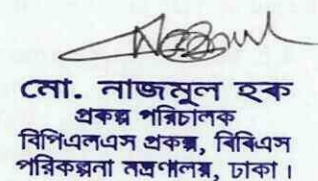 মো. নাজমুল হক
প্রকল্প পরিচালক
বিপিএলএস প্রকল্প, বিবিএস
পরিকল্পনা মন্ত্রণালয়, ঢাকা।